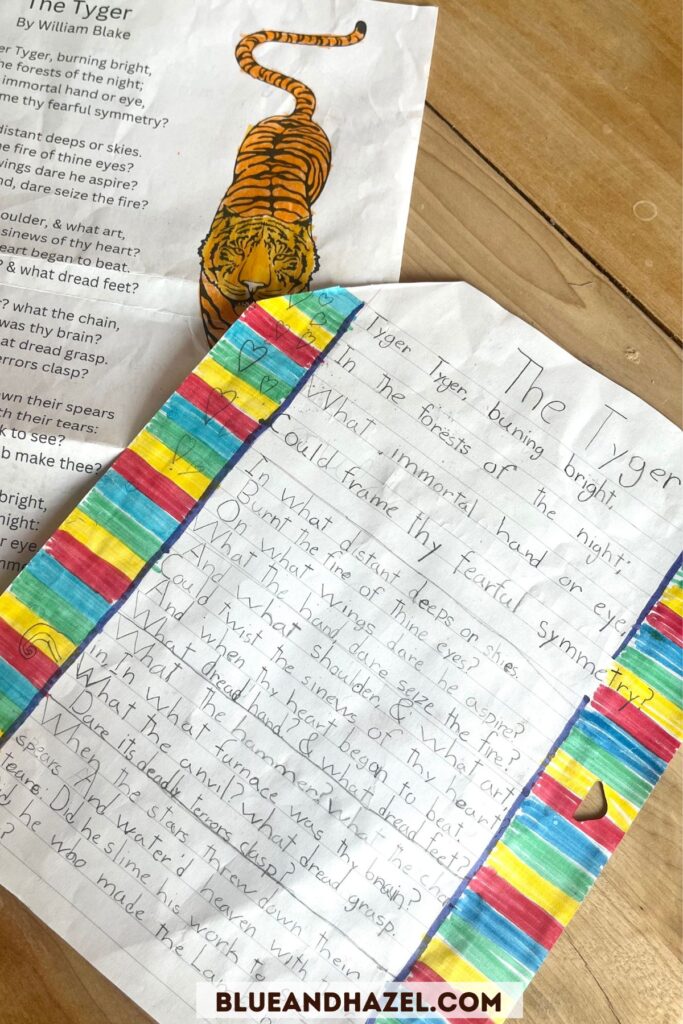 The Tyger
By William Blake
Tyger, burning bright,
forests of the night;
immortal hand or eye,
thy fearful symmetry?
distant deeps or skies.
fire of thine eyes?
wings dare he aspire?
dare seize the fire?
& what art,
sinews of thy heart?
began to beat.
? & what dread feet?
? what the chain,
was thy brain?
dread grasp.
clasp?
their spears
their tears:
to see?
make thee?
bright,
night:
or eye
The Tyger
Tyger Tyger, buning bright,
In the forests of the night;
What immortal hand or eye,
Could frame thy fearful symmetry?
In what distant deeps or skies.
Burnt the fire of thine eyes?
On what wings dare he aspire?
What the hand dare seize the fire?
And what shoulder & what art
Could twist the sinews of thy heart
And when thy heart began to beat.
What dread hand? & what dread feet?
What the hammer? what the
in In what furnace was thy brain?
What the anvil? what dread grasp.
Dare its deadly terrors clasp?
When the stars threw down their
spears And water'd heaven with
tears: Did he slime his work to
he who made the
?
BLUEANDHAZEL.COM